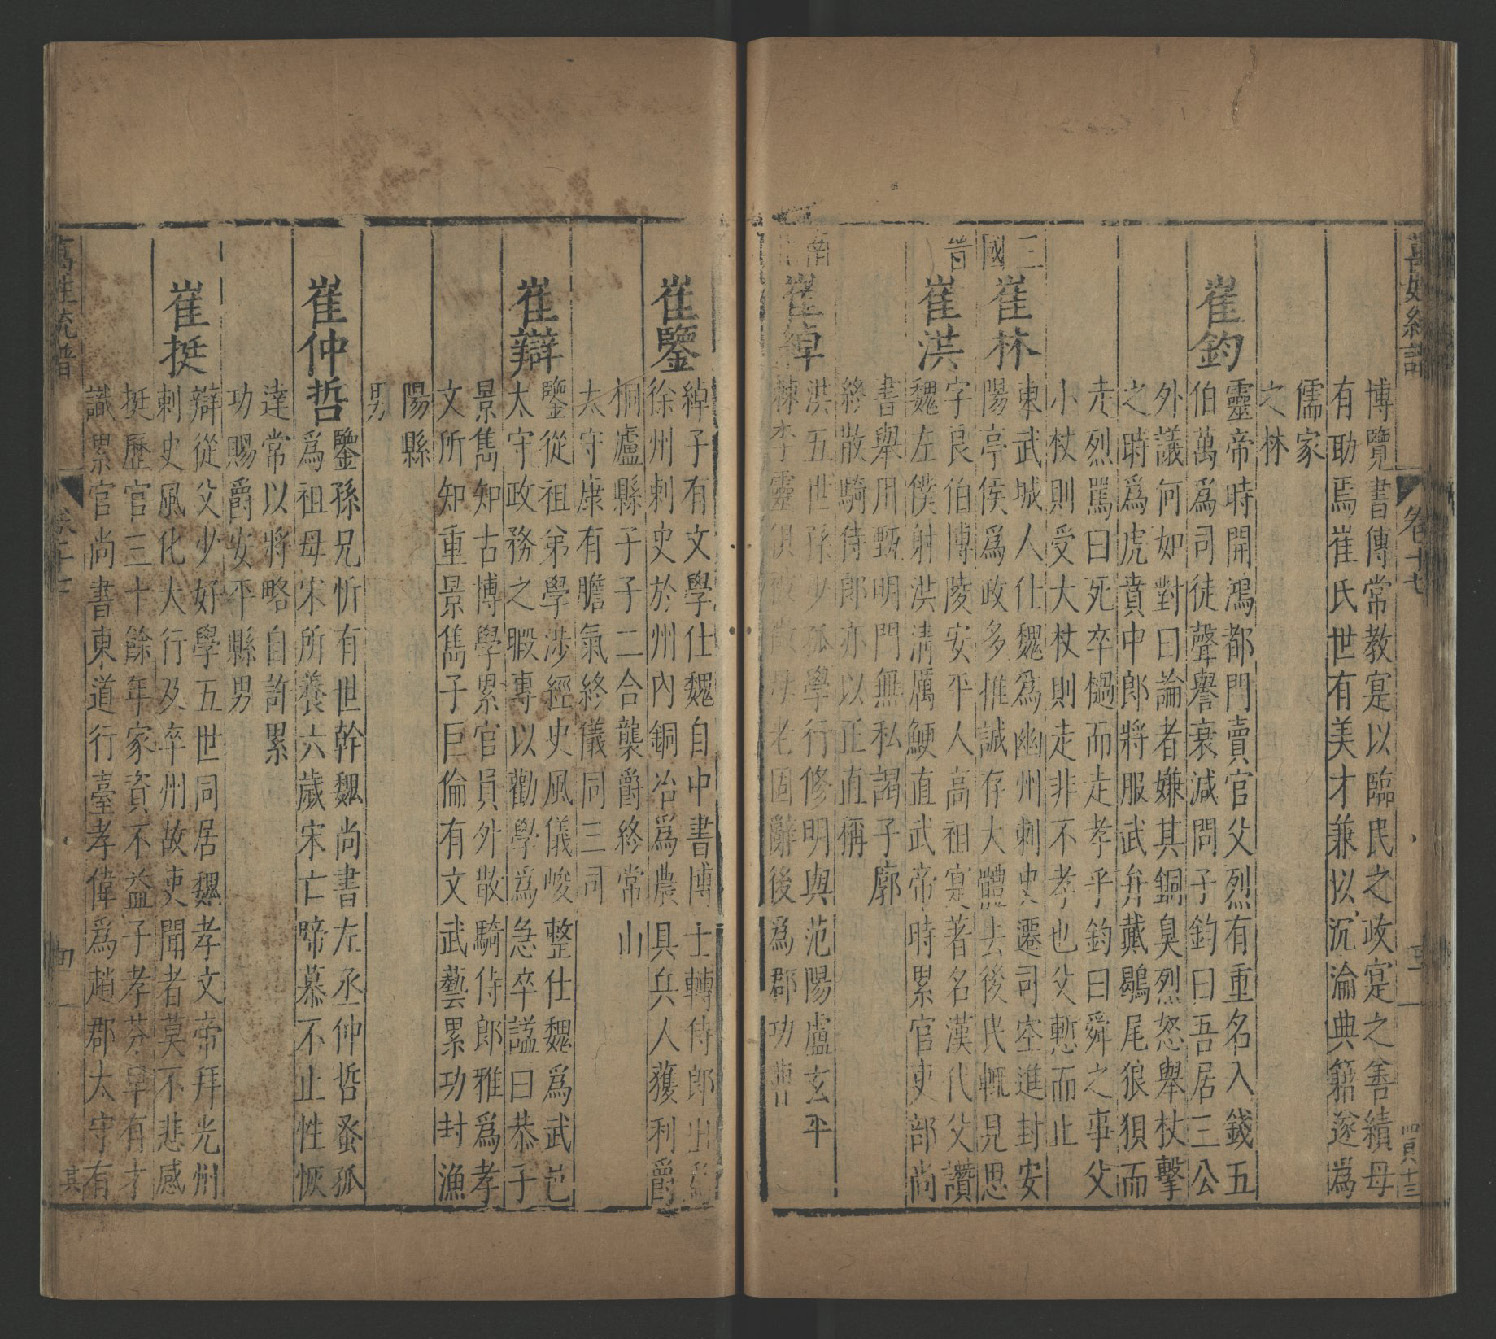 博覽書傳常教寔以臨民之政寔之善績母
有助焉崔氏世有美才兼以沉淪典籍遂為
儒家
之林
崔鈞
靈帝時開鴻都門賣官父烈有重名入錢五
伯萬爲司徒聲譽衰減問子鈞曰吾居三公
外議何如對曰論者嫌其銅臭烈怒舉杖擊
之時爲虎賁中郎將服武弁戴鶡尾狼狽而
走烈罵曰死卒撾而走孝乎鈞曰舜之事父
小杖則受大杖則走非不孝也父慙而止
三國
崔林
東武城人仕魏爲幽州刺史遷司空進封安
陽亭侯爲政多推誠存大體去後民輒見思
晉
崔洪
字良伯博陵安平人高祖寔著名漢代父讚
魏左僕射洪清厲鯁直武帝時累官吏部尚
書舉用甄明門無私謁子廓
終散騎侍郎亦以正直稱
崔綽
洪五世孫少孤學行修明與范陽盧玄平
老固辭後爲郡功曹
崔鑒
綽子有文學仕魏自中書博士轉侍郎出爲
徐州刺史於州內銅冶爲農具兵人獲利爵
桐廬縣子子二合襲爵終常山
太守康有膽氣終儀同三司
崔辯
鑒從祖弟學涉經史風儀峻整仕魏爲武邑
太守政務之暇專以勸學爲急卒諡曰恭子
景雋知古博學累官員外散騎侍郎雅爲孝
文所知重景雋子巨倫有文武藝累功封漁
陽縣
男
崔仲哲
鑒孫兄忻有世幹魏尚書左丞仲哲蚤孤
爲祖母宋所養六歲宋亡啼慕不止性恢
達常以將略自許累
功賜爵安平縣男
崔挺
辯從父少好學五世同居魏孝文帝拜光州
刺史風化大行及卒州故吏聞者莫不悲感
挺歷官三十餘年家資不益子孝芬早有才
識累官尚書東道行臺孝偉爲趙郡太守有
萬姓統譜